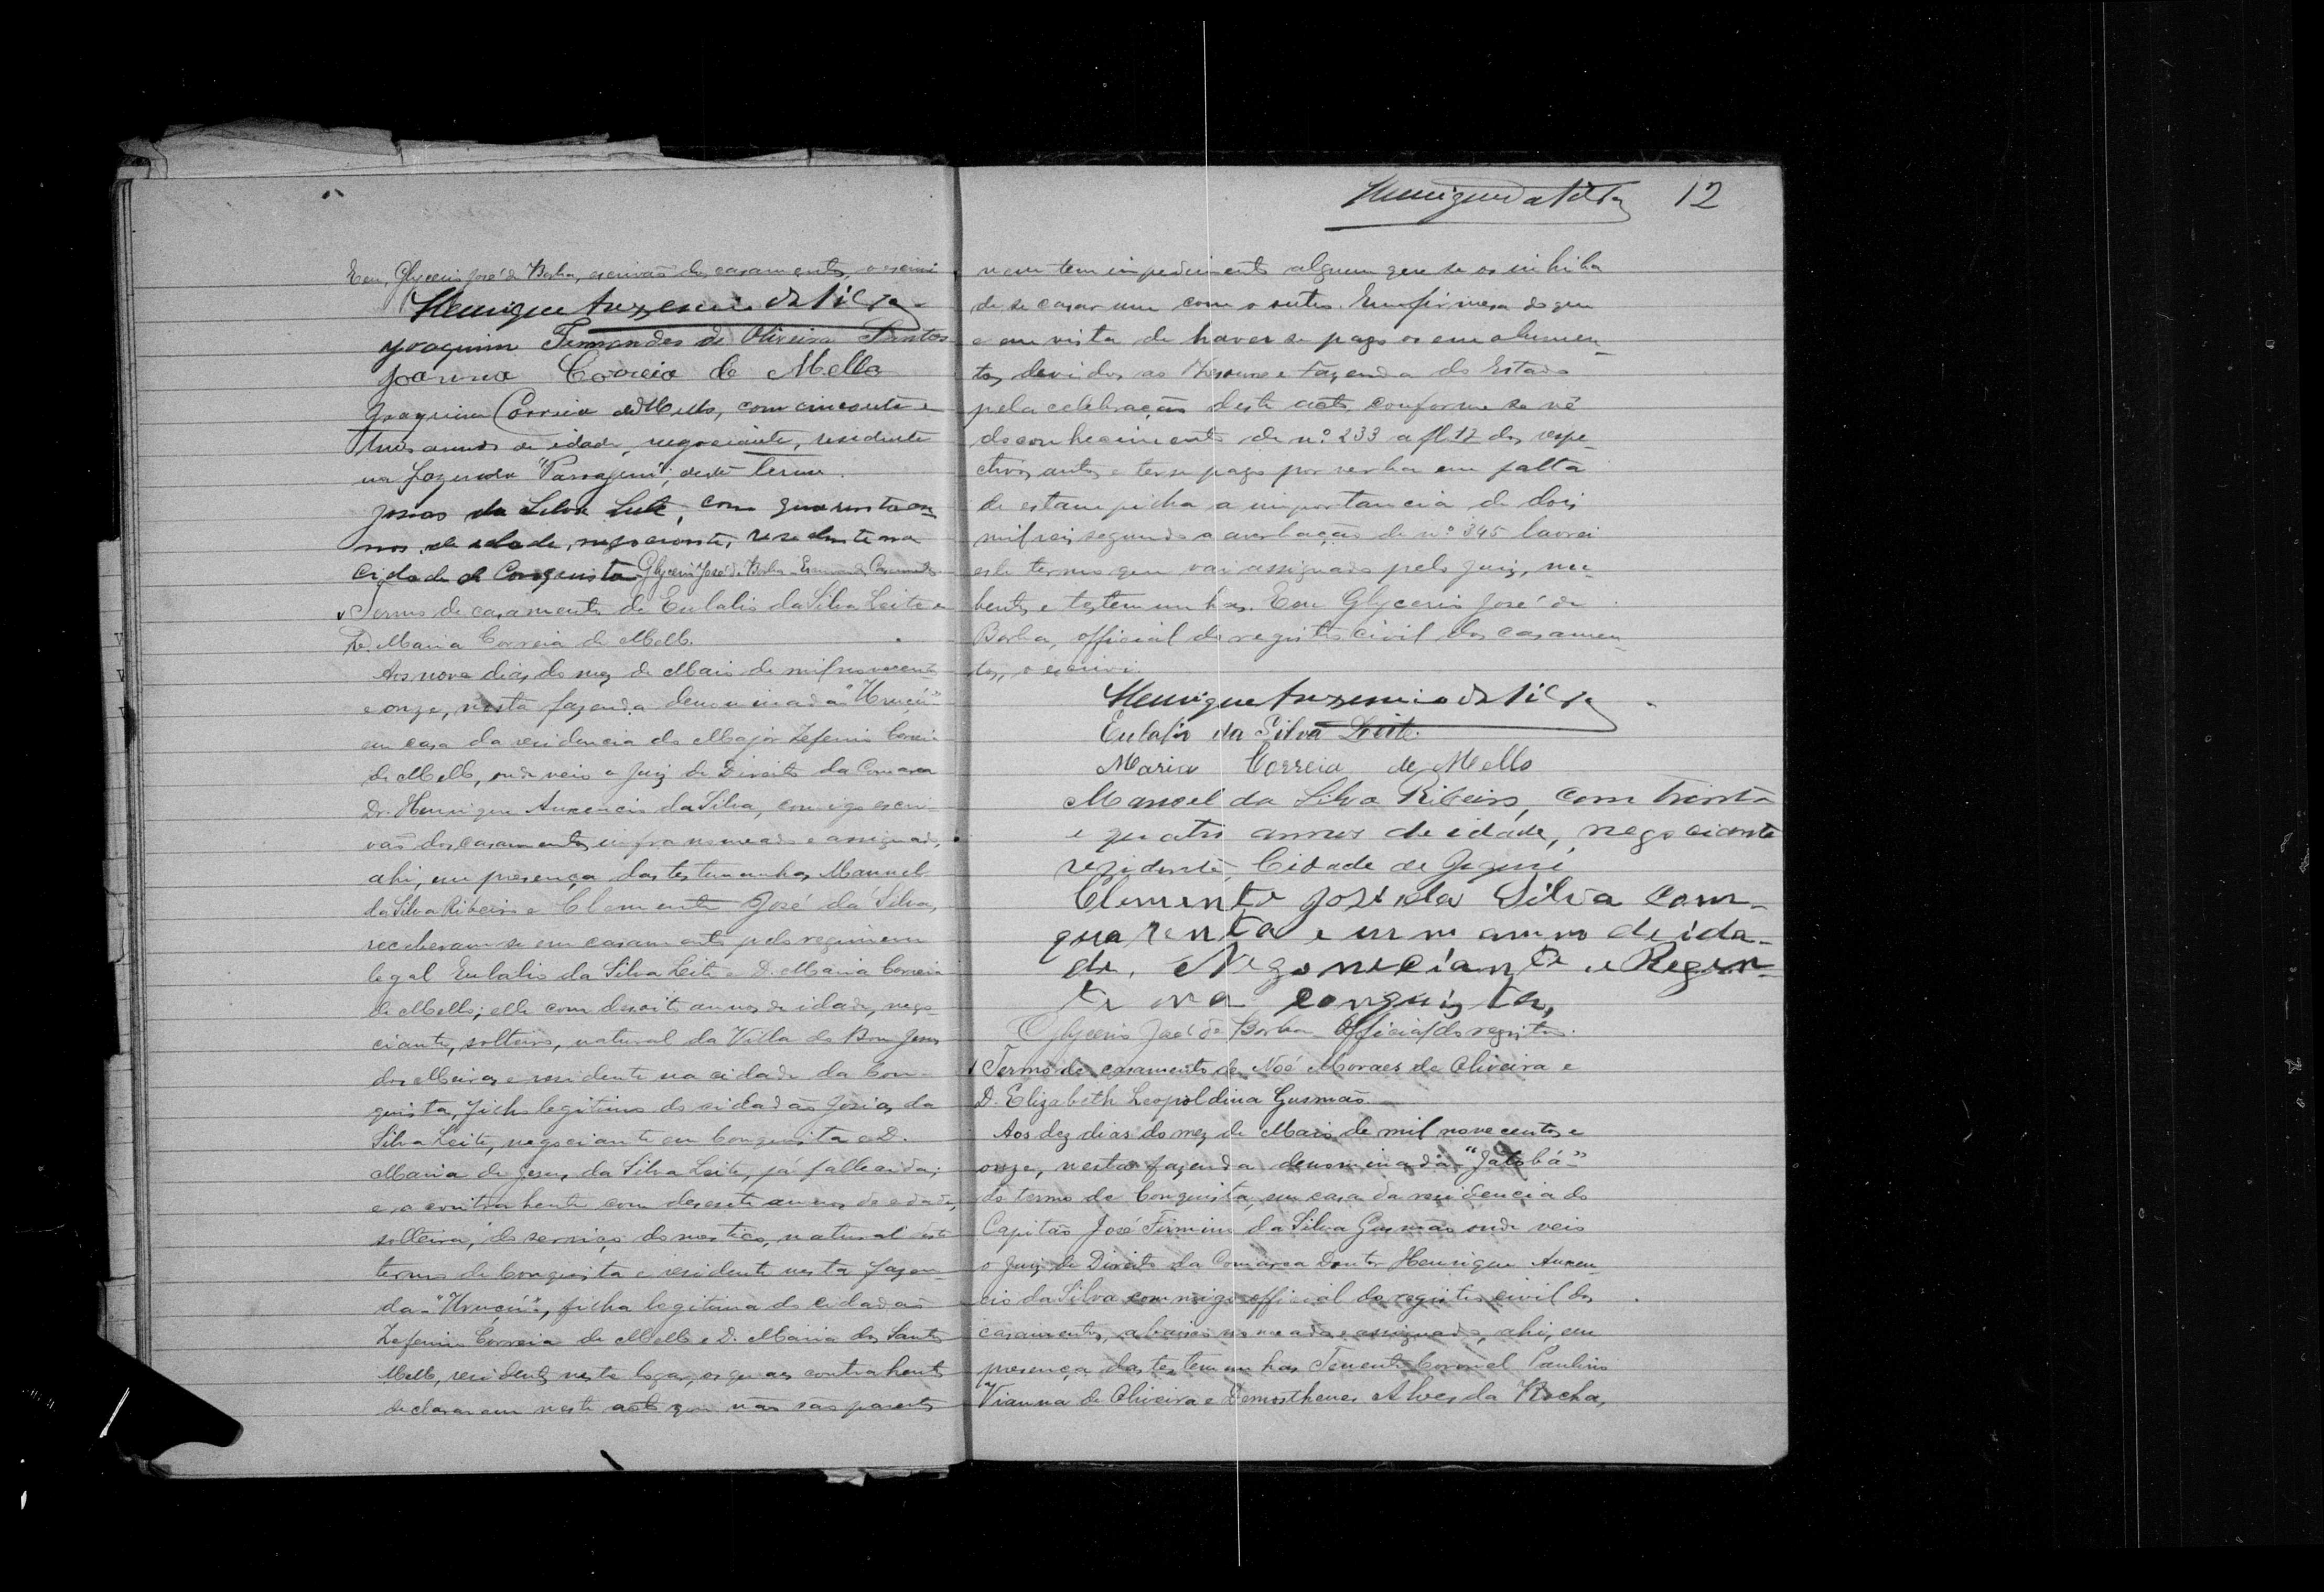 Eu, Glycerio José de Borba, escrivão dos casamentos, o escrevi
Henrique Auxencio da Silva
Joaquim Fernandes de Oliveira Santos
Joanna Correia de Mello
Joaquim Correia de Mello, com cincoenta e
tres annos de idade, negociante, residente
na fazenda "Passagem", deste termo.
Josias da Silva Leite, com quarenta an-
nos de idade, negociante, residente na
Cidade de Conquista. Glycerio José de Borba Escrivão dos Casamentos
Termo de casamento de Eulalio da Silva Leite e
D. Maria Correia de Mello.
Aos nove dias do mez de Maio de mil novecentos
e onze, nesta fazenda denominada "Uruçú"
em casa da residencia do Major Zeferino Correia
de Mello, onde veio o Juiz de Direito da Comarca
Dr. Henrique Auxencio da Silva, comigo escri-
vão dos casamentos infra nomeado e assignado,
ahi, em presença das testemunhas Manuel
da Silva Ribeiro e Clemente José da Silva,
receberam-se em casamento pelo regimem
legal Eulalio da Silva Leite e D. Maria Correia
de Mello; elle com desoito annos de idade, nego-
ciante, solteiro, natural da Villa do Bom Jesus
dos Meiras e residente na cidade da Con-
quista, filho legitimo do cidadão Josias da
Silva Leite, negociante em Conquista e D.
Maria de Jesus da Silva Leite, já fallecida;
e a contrahente com desesete annos de edade,
solteira, do serviço domestico, natural deste
termo de Conquista e residente nesta fazen-
da "Uruçú", filha legitima do cidadão
Zeferino Correia de Mello e D. Maria dos Santos
Mello, residentes neste logar, os quaes contrahentes
declararam neste acto que não são parentes
Henrique da Silva 12
nem tem impedimento algum que se os inhiba
de se casar um com o outro. Em firmesa do que
e em vista de haver se pago os emolumen-
tos devidos ao Thesouro e Fazenda do Estado
pela celebração deste acto, conforme se vê
do conhecimento de nº 233 a fl 12 dos respe-
ctivos autos e ter se pago por verba em falta
de estampilha a importancia de dois
mil reis segundo a averbação de nº 345 lavrei
este termo que vai assignado pelo juiz, nu-
bentes e testemunhas. Eu Glycerio José de
Borba, official do registro civil dos casamen-
tos, o escrevi.
Henrique Auxencio da Silva
Eulalio da Silva Leite
Maria Correia de Mello
Manoel da Silva Ribeiro, com trinta
e quatro annos de idade, negociante
rezidente, Cidade de Jequié
Clemente José da Silva com
quarenta e um anno de ida-
de, Negoneciante e Rezen-
te na conquista,
Glycerio José de Borba Official do registro.
Termo de casamento de Noé Moraes de Oliveira e
D. Elizabeth Leopoldina Gusmão
Aos dez dias do mez de Maio de mil novecentos e
onze, nesta fazenda denominada "Jatobá"
do termo de Conquista, em casa da residencia do
Capitão José Firmino da Silva Gusmão onde veio
o Juiz de Direito da Comarca Doutor Henrique Auxen-
cio da Silva commigo official do registro civil dos
casamentos, abaixo nomeado e assignado, ahi, em
presença das testemunhas Tenente Coronel Paulino
Vianna de Oliveira e Demosthenes Alves da Rocha,